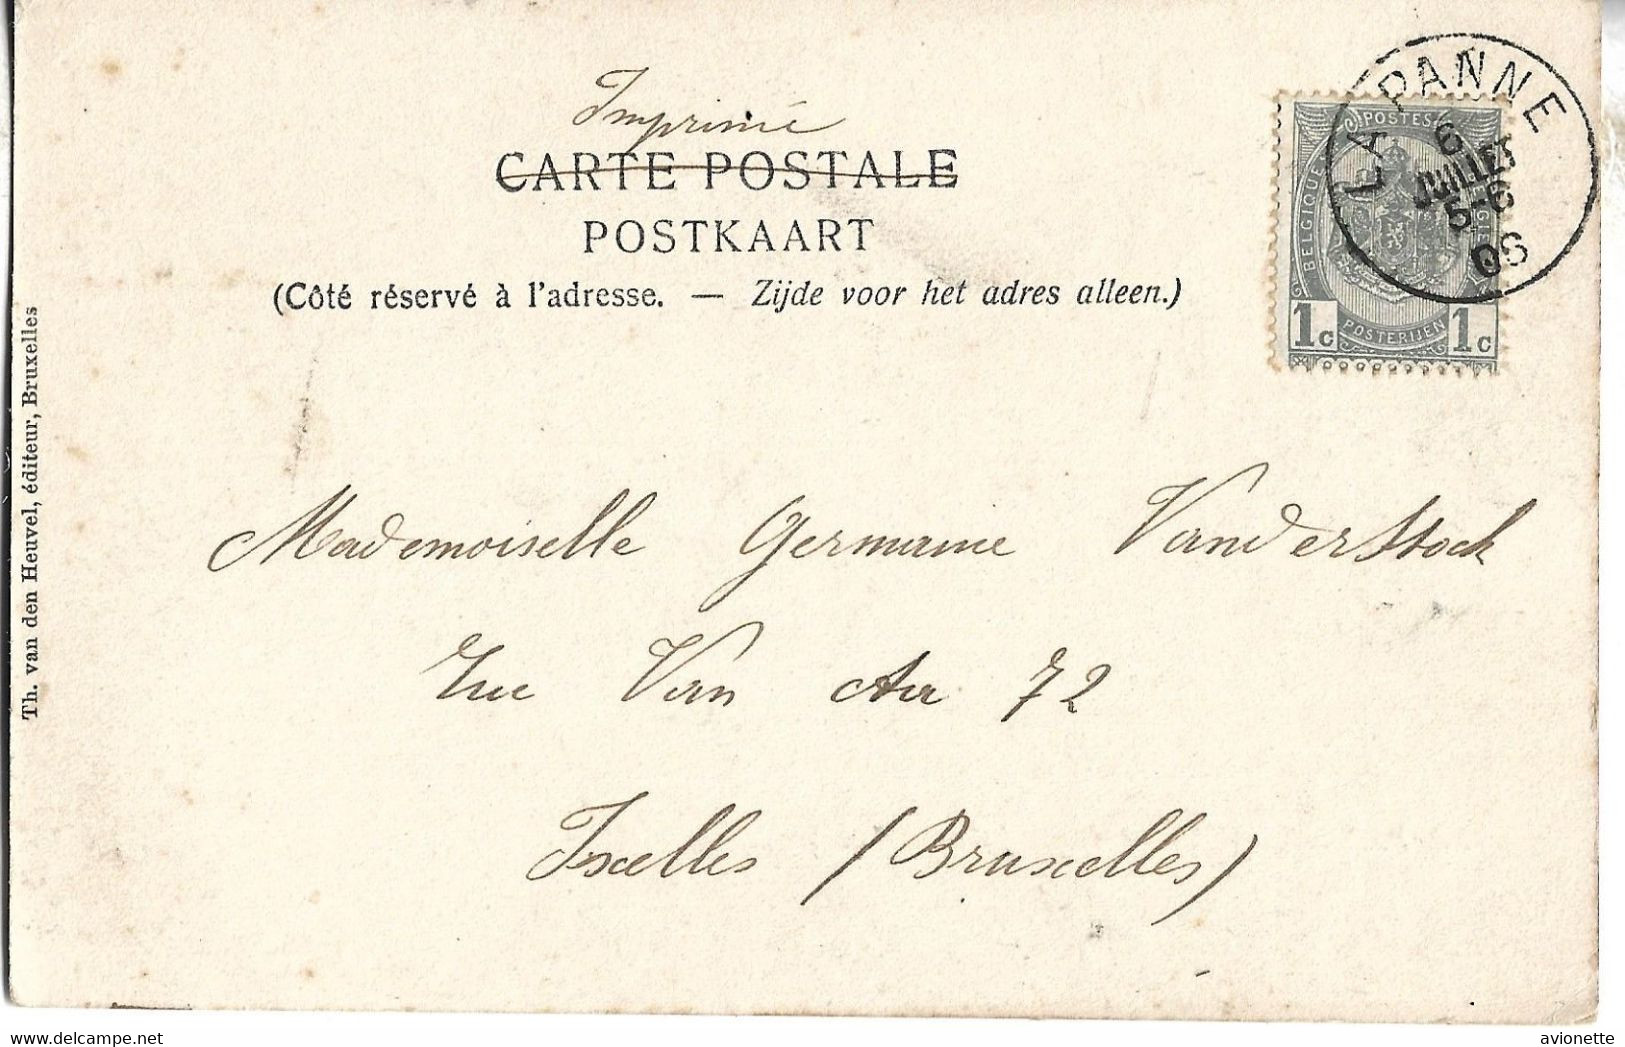 Imprimé
CARTE POSTALE
POSTKAART
(Côté réservé à l'adresse. — Zijde voor het adres alleen.)
LA PANNE
6
JUILLET
5-6
POSTES
BELGIQUE
BELGIË
POSTERIJEN
1c 1c
Mademoiselle Germaine Vanderstock
Rue Van Aa 72
Ixelles (Bruxelles)
Th. van den Heuvel, éditeur, Bruxelles
https://www.delcampe.net
avionette